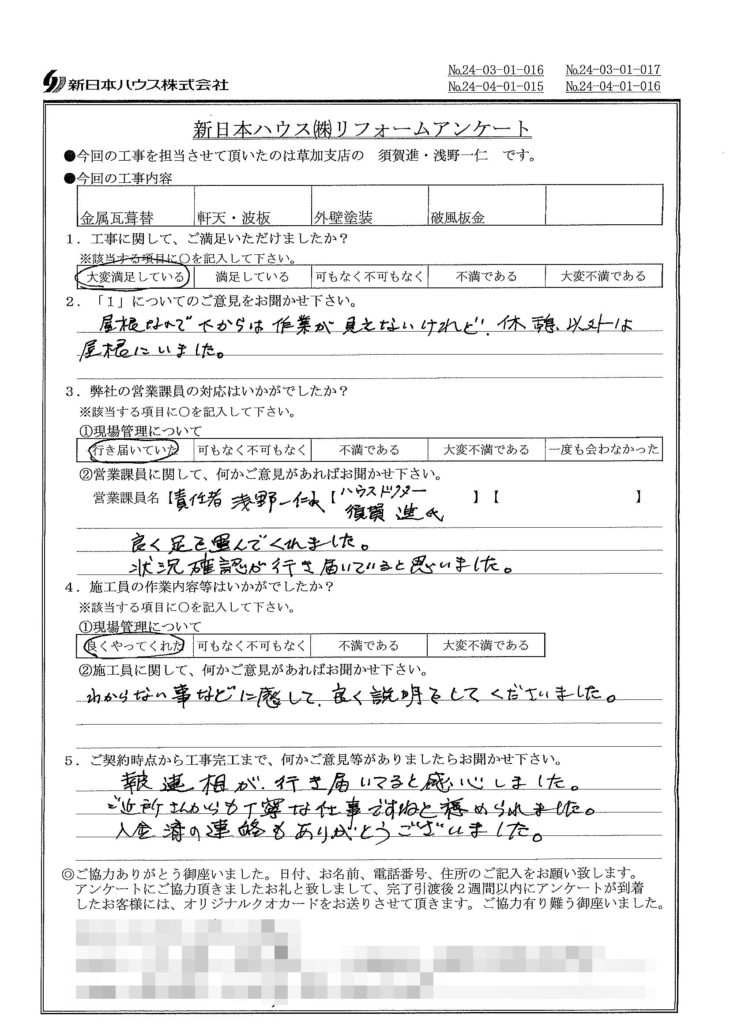 №24-03-01-016 №24-03-01-017
新日本ハウス株式会社 №24-04-01-015 №24-04-01-016
新日本ハウス㈱リフォームアンケート
●今回の工事を担当させて頂いたのは草加支店の 須賀進・浅野一仁 です。
●今回の工事内容
金属瓦葺替 軒天・波板 外壁塗装 破風板金
1．工事に関して、ご満足いただけましたか？
※該当する項目に○を記入して下さい。
大変満足している 満足している 可もなく不可もなく 不満である 大変不満である
2．「1」についてのご意見をお聞かせ下さい。
屋根なので下からは作業が見えないけれど、休憩以外は
屋根にいました。
3．弊社の営業課員の対応はいかがでしたか？
※該当する項目に○を記入して下さい。
①現場管理について
行き届いていた 可もなく不可もなく 不満である 大変不満である 一度も会わなかった
②営業課員に関して、何かご意見があればお聞かせ下さい。
営業課員名【責任者 浅野一仁氏】【ハウスドクター 須賀 進氏】【 】
良く足を運んでくれました。
状況確認が行き届いていると思いました。
4．施工員の作業内容等はいかがでしたか？
※該当する項目に○を記入して下さい。
①現場管理について
良くやってくれた 可もなく不可もなく 不満である 大変不満である
②施工員に関して、何かご意見があればお聞かせ下さい。
わからない事などに関して、良く説明をしてくださいました。
5．ご契約時点から工事完工まで、何かご意見等がありましたらお聞かせ下さい。
報連相が、行き届いてると感心しました。
ご近所さんからも丁寧な仕事ですねと褒められました。
入金済の連絡もありがとうございました。
◎ご協力ありがとう御座いました。日付、お名前、電話番号、住所のご記入をお願い致します。
アンケートにご協力頂きましたお礼と致しまして、完了引渡後2週間以内にアンケートが到着
したお客様には、オリジナルクオカードをお送りさせて頂きます。ご協力有り難う御座いました。